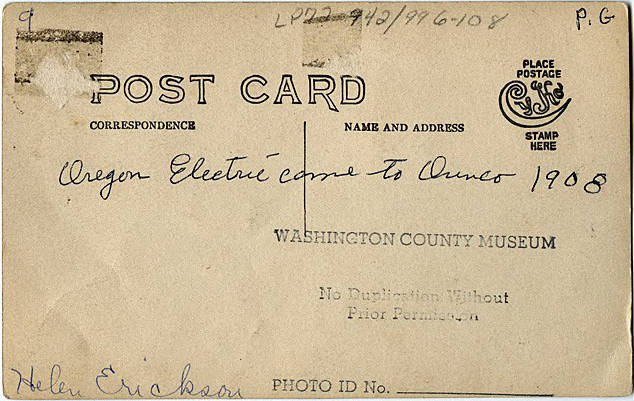 9
LP72 942/996-108
P. G
POST CARD
PLACE
POSTAGE
STAMP
HERE
CORRESPONDENCE
NAME AND ADDRESS
Oregon Electric came to Orenco 1908
WASHINGTON COUNTY MUSEUM
No Duplication Without
Prior Permission
Helen Erickson
PHOTO ID No.